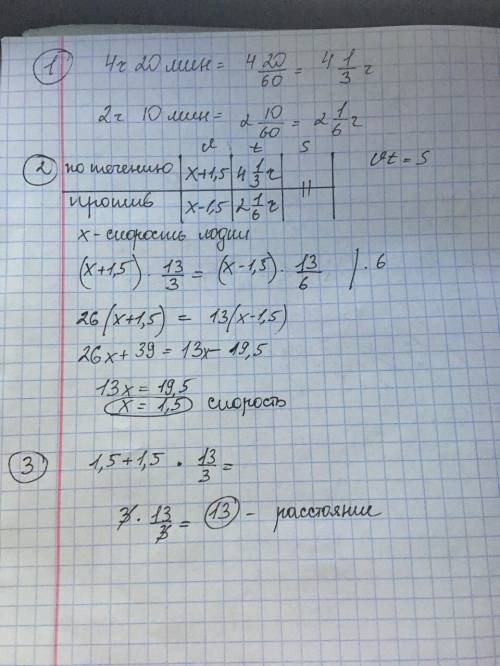 1 4ч 20 мин = 4 20/60 = 4 1/3 ч
2ч 10 мин = 2 10/60 = 2 1/6 ч
v t S
2 по течению x+1,5 4 1/3 ч || vt = S
против x-1,5 2 1/6 ч
x - скорость лодки
(x+1,5) · 13/3 = (x-1,5) · 13/6 / · 6
26(x+1,5) = 13(x-1,5)
26x + 39 = 13x - 19,5
13x = 19,5
x = 1,5 скорость
3 1,5+1,5 · 13/3 =
3 · 13/3 = 13 - расстояние